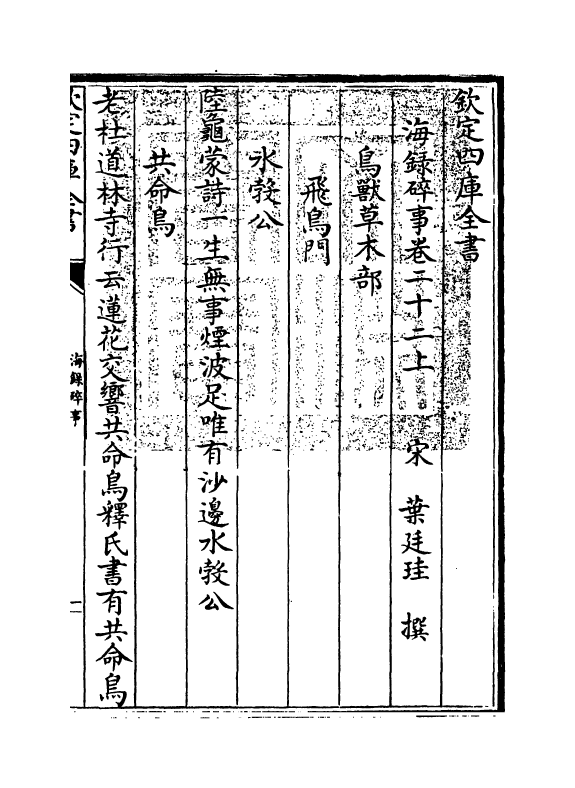 欽定四庫全書
海録碎事卷二十二上　宋　葉廷珪　撰
鳥獸草木部
飛鳥門
水㲉公
陸龜蒙詩一生無事煙波足唯有沙邊水㲉公
共命鳥
老杜道林寺行云蓮花交響共命鳥釋氏書有共命鳥
欽定四庫全書
海録碎事
一